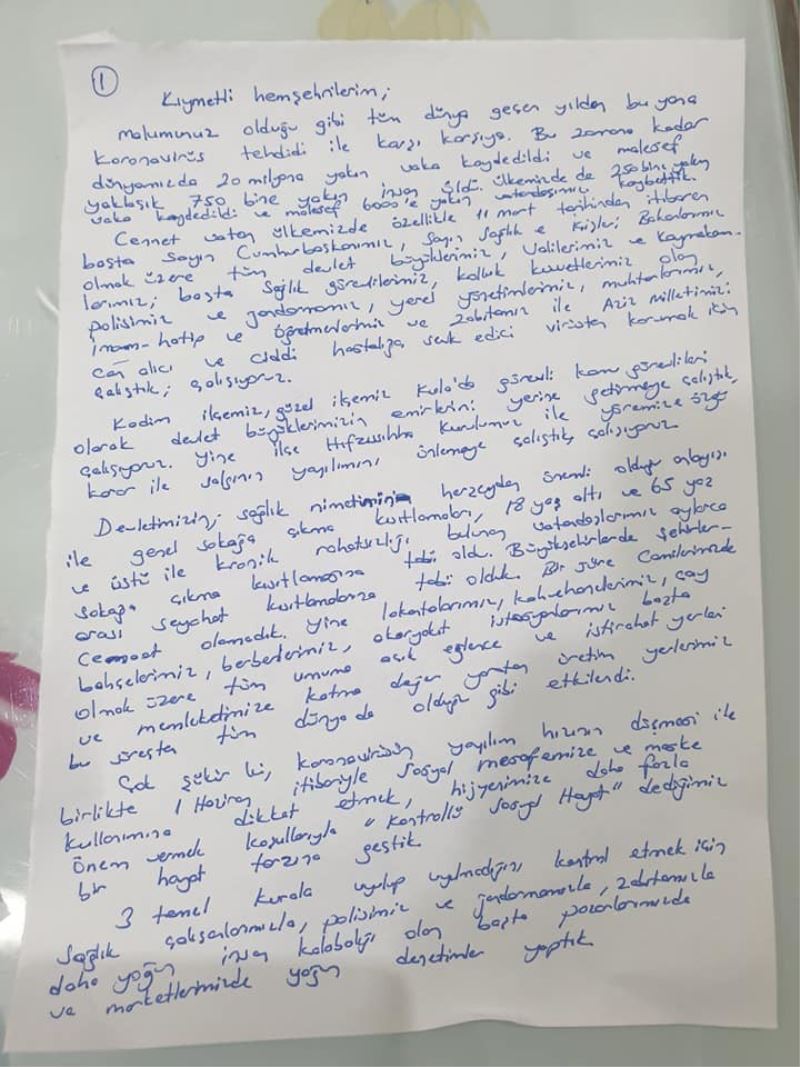 1
Kıymetli hemşehrilerim;
malumunuz olduğu gibi tüm dünya geçen yıldan bu yana
Koronavirüs tehdidi ile karşı karşıya. Bu zamana kadar
dünyamızda 20 milyona yakın vaka kaydedildi ve malesef
yaklaşık 750 bine yakın insan öldü. Ülkemizde de 250 bine yakın
vaka kaydedildi ve malesef 6000'e yakın vatandaşımızı kaybettik.
Cennet vatan ülkemizde özellikle 11 mart tarihinden itibaren
başta Sayın Cumhurbaşkanımız, Sayın Sağlık ve İçişleri Bakanlarımız
olmak üzere tüm devlet büyüklerimiz, Valilerimiz ve Kaymakam-
larımız; başta sağlık görevlilerimiz, kolluk kuvvetlerimiz olan
polisimiz ve jandarmamız, yerel yönetimlerimiz, muhtarlarımız,
imam-hatip ve öğretmenlerimiz ve zabıtamız ile Aziz Milletimizi
can alıcı ve ciddi hastalığa sevk edici virüsten korumak için
çalıştık; çalışıyoruz.
Kadim ilçemiz, güzel ilçemiz Kula'da görevli kamu görevlileri
olarak devlet büyüklerimizin emirlerini yerine getirmeye çalıştık,
çalışıyoruz. Yine İlçe Hıfzıssıhha Kurulumuz ile yöremize özgü
karar ile salgının yayılımını önlemeye çalıştık, çalışıyoruz
Devletimizin; sağlık nimetinin herşeyden önemli olduğu anlayışı
ile genel sokağa çıkma kısıtlamaları, 18 yaş altı ve 65 yaş
ve üstü ile kronik rahatsızlığı bulunan vatandaşlarımız aylarca
sokağa çıkma kısıtlamasına tabi oldu. Büyükşehirlerde şehirler-
arası seyahat kısıtlamalarına tabi olduk. Bir süre Camilerimizde
Cemaat olamadık. Yine lokantalarımız, kahvehanelerimiz, çay
bahçelerimiz, berberlerimiz, akaryakıt istasyonlarımız başta
olmak üzere tüm umuma açık eğlence ve istirahat yerleri
ve memleketimize katma değer yaratan üretim yerlerimiz
bu süreçten tüm dünya da olduğu gibi etkilendi.
Çok şükür ki, koronavirüsün yayılım hızının düşmesi ile
birlikte 1 Haziran itibariyle sosyal mesafemize ve maske
kullanımına dikkat etmek, hijyenimize daha fazla
önem vermek koşullarıyla "Kontrollü Sosyal Hayat" dediğimiz
bir hayat tarzına geçtik.
3 temel kurala uyulup uyulmadığını kontrol etmek için
Sağlık çalışanlarımızla, polisimiz ve jandarmamızla, zabıtamızla
daha yoğun insan kalabalığı olan başta pazarlarımızda
ve marketlerimizde yoğun denetimler yaptık